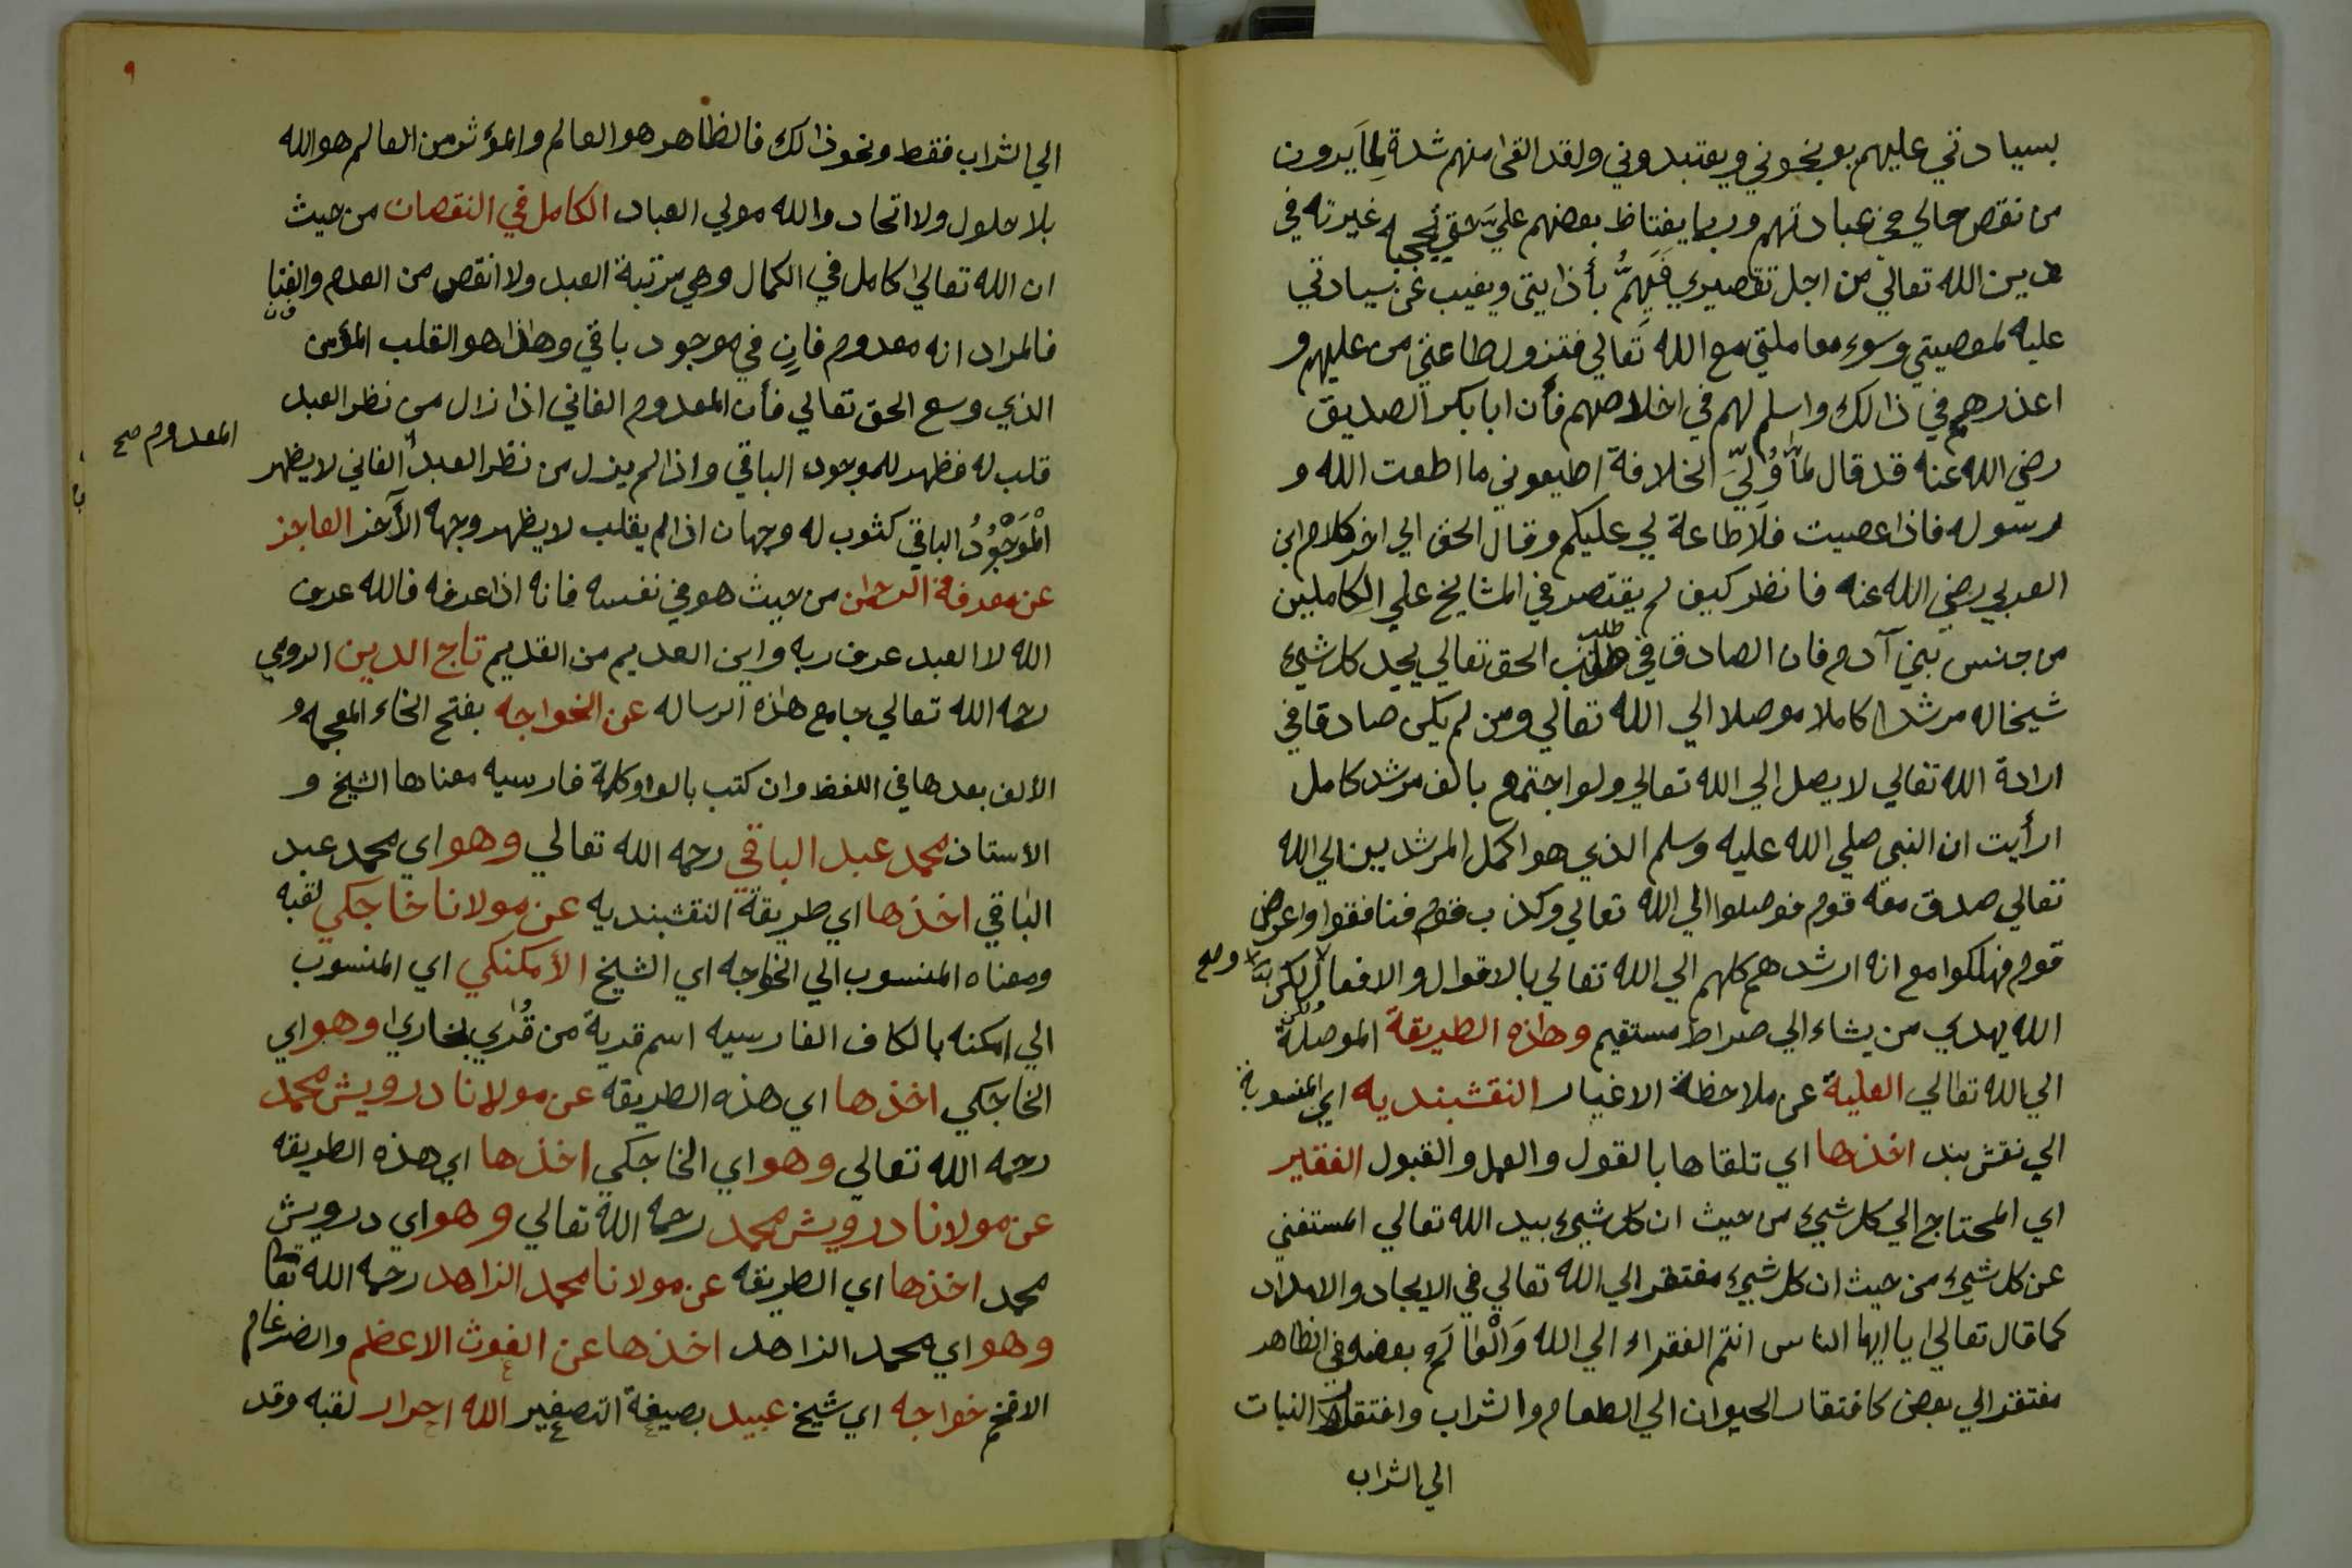 بسيادتي عليهم يوبخوني ويعتبدوني ولقد القى منهم شدة لما يرون
من نقص حالي عن عبادتهم وربما يغتاظ بعضهم علي حتى غيرته في
دين الله تعالى من اجل تقصيري فيهم بأذايتي ويغيب عن سيادتي
عليه لمعصيتي وسوء معاملتي مع الله تعالي فتزول طاعتي من عليهم و
اعذرهم في ذالك واسلم لهم في اخلاصهم فأن ابا بكر الصديق
رضي الله عنه قد قال لما ولي الخلافة اطيعوني ما اطعت الله و
رسوله فاذا عصيت فلا طاعة لي عليكم وقال الحق الي اخر كلام ابن
العربي رضي الله عنه فانظر كيف لم يقتصر في المشايخ علي الكاملين
من جنس بني آدم فان الصادق في طلب الحق تعالي يجد كل شيء
شيخا له مرشدا كاملا موصلا الي الله تعالي ومن لم يكن صادقا في
ارادة الله تعالي لا يصل الي الله تعالي ولو اجتمع بالف مرشد كامل
ارأيت ان النبي صلي الله عليه وسلم الذي هو اكمل المرشدين الي الله
تعالي صدق معه قوم فوصلوا الي الله تعالي وكذب قوم فنافقوا واعرض
قوم فهلكوا مع انه ارشدهم كلهم الي الله تعالي بالاقوال والافعال ولكن صح
الله يهدي من يشاء الي صراط مستقيم وهذه الطريقة الموصلة
الي الله تعالي العلية عن ملاحظة الاغيار النقشبنديه اي المنسوبة
الي نقش بند اخذها اي تلقاها بالقول والعمل والقبول الفقير
اي المحتاج الي كل شيء من حيث ان كل شيء بيد الله تعالي المستغني
عن كل شيء من حيث ان كل شيء مفتقر الي الله تعالي في الايجاد والامداد
كما قال تعالي يا ايها الناس انتم الفقراء الي الله والعالم بعضه في الظاهر
مفتقر الي بعض كافتقار الحيوان الي الطعام والشراب وافتقار النبات
الي الشراب
٩
الي الشراب فقط ونحو ذالك فالظاهر هو العالم والمؤثر من العالم هو الله
بلا حلول ولا اتحاد والله مولي العباد الكامل في النقصان من حيث
ان الله تعالي كامل في الكمال وهي مرتبة العبد ولا انقص من العدم والفنا
فالمراد انه معدوم فانٍ في موجود باقي وهذا هو القلب المؤمن
الذي وسع الحق تعالي فأن المعدوم الفاني اذا زال من نظر العبد
قلب له فظهر للموجود الباقي واذا لم يزل من نظر العبد الفاني لا يظهر
المعدوم صح
الْمَوْجُوْدُ الباقي كثوب له وجهان اذا لم يقلب لا يظهر وجهه الآخر العاجز
عن معرفة الرحمن من حيث هو في نفسه فانه اذا عرفه فالله عرف
الله لا العبد عرف ربه واين العديم من القديم تاج الدين الرومي
رحمه الله تعالي جامع هذه الرساله عن الخواجه بفتح الخاء المعجمه و
الألف بعدها في اللفظ وان كتب بالواو كلمة فارسيه معناها الشيخ و
الأستاذ محمد عبد الباقي رحمه الله تعالي وهو اي محمد عبد
الباقي اخذها اي طريقة النقشبنديه عن مولانا خاجكي لقبه
ومعناه المنسوب الي الخواجه اي الشيخ الأمكنكي اي المنسوب
الي امكنه بالكاف الفارسيه اسم قرية من قُرٰي بخاري وهو اي
الخاجكي اخذها اي هذه الطريقه عن مولانا درويش محمد
رحمه الله تعالي وهو اي الخاجكي اخذها اي هذه الطريقه
عن مولانا درويش محمد رحمه الله تعالي وهو اي درويش
محمد اخذها اي الطريقه عن مولانا محمد الزاهد رحمه الله تعا
وهو اي محمد الزاهد اخذها عن الغوث الاعظم والضرغام
الافخم خواجه اي شيخ عبيد بصيغة التصغير الله احرار لقبه وقد